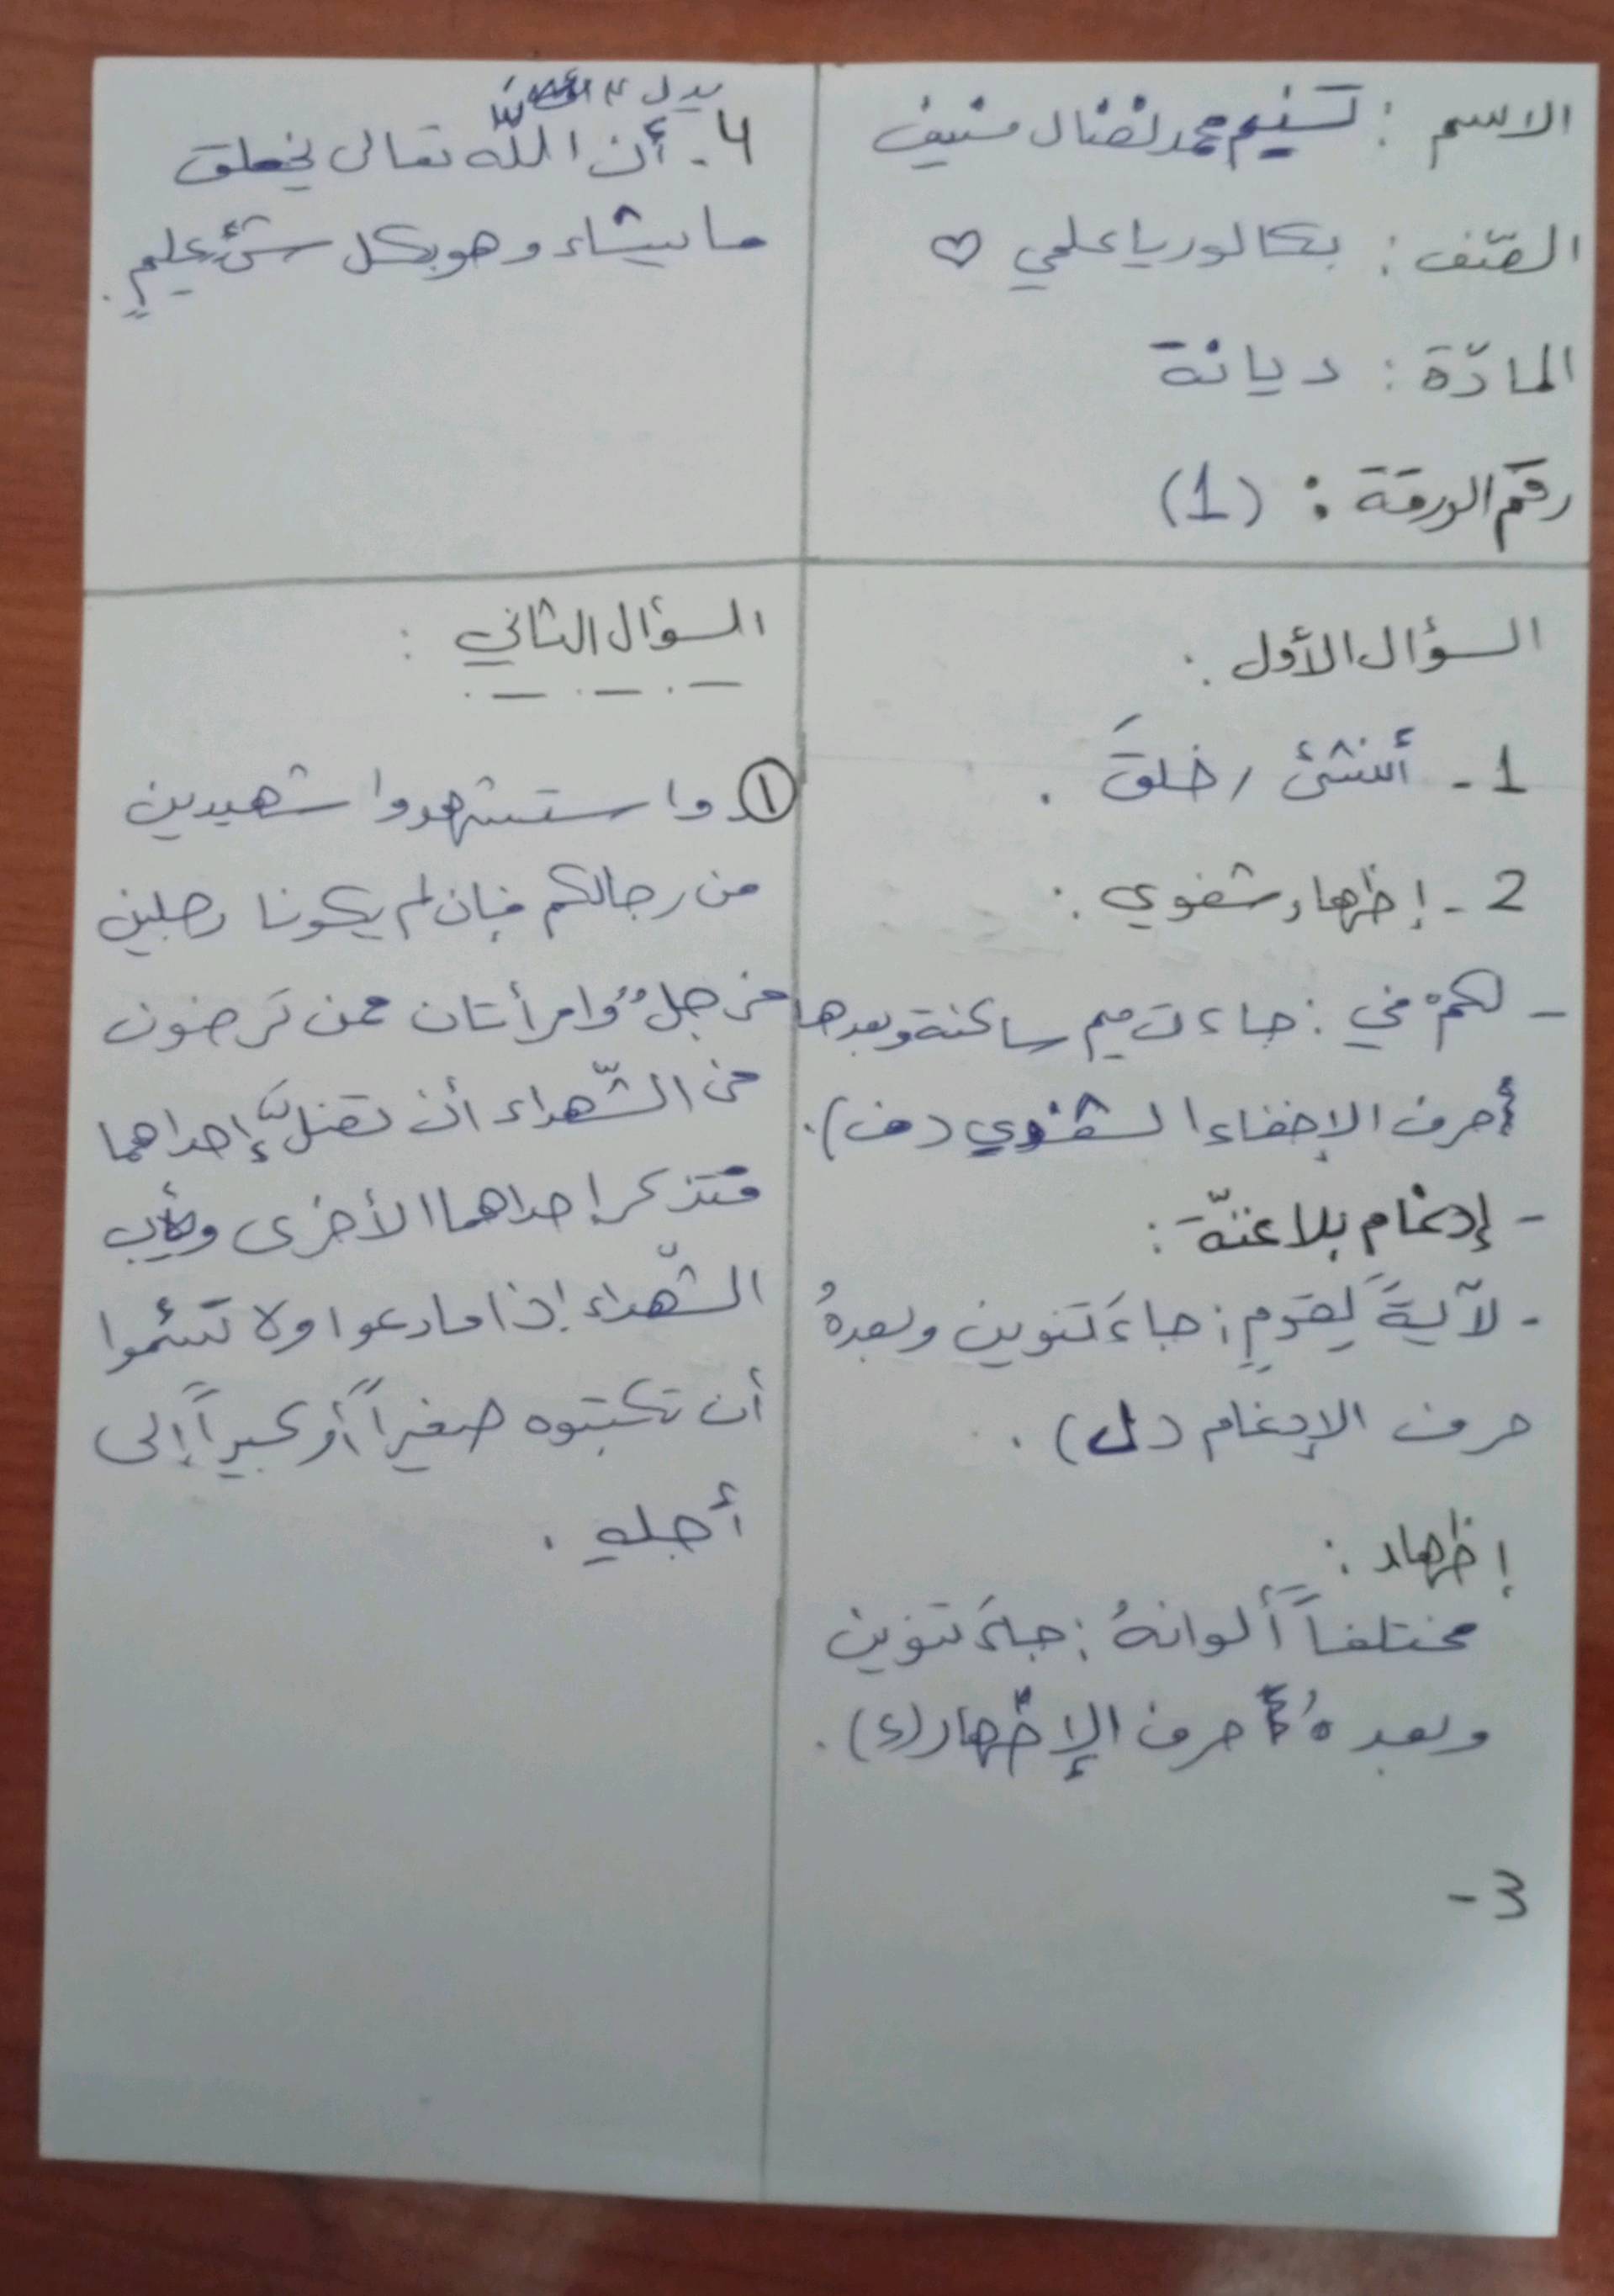 الاسم : تسنيم محمد نضال منيف
الصّف : بكالوريا علمي ♡
المادّة : ديانة
رقم الورقة : (1)
السؤال الأول :
1 - أنشئ / خلقَ .
2 - إظهار شفوي :
- لكمْ في : جاءت ميم ساكنة وبعدها
أحرف الإخفاء الشفوي (ف) .
- إدغام بلا غنّة :
- لآيةً لقومٍ : جاءَ تنوين وبعدهُ
حرف الإدغام (ل) .
إظهار :
مختلفاً ألوانهُ : جاءَ تنوين
وبعدهُ حرف الإظهار (ء) .
3 -
يدل
4 - أن الله تعالى يخلق
ما يشاء وهو بكل شيء عليمٍ .
السؤال الثاني :
① واستشهدوا شهيدين
من رجالكم فإن لم يكونا رجلين
فرجلٌ وامرأتان ممن ترضون
من الشّهداء أن تضلَّ إحداهما
فتذكر إحداهما الأخرى ويأب
الشّهداء إذا ما دعوا ولا تسئموا
أن تكتبوه صغيراً أو كبيراً إلى
أجله .